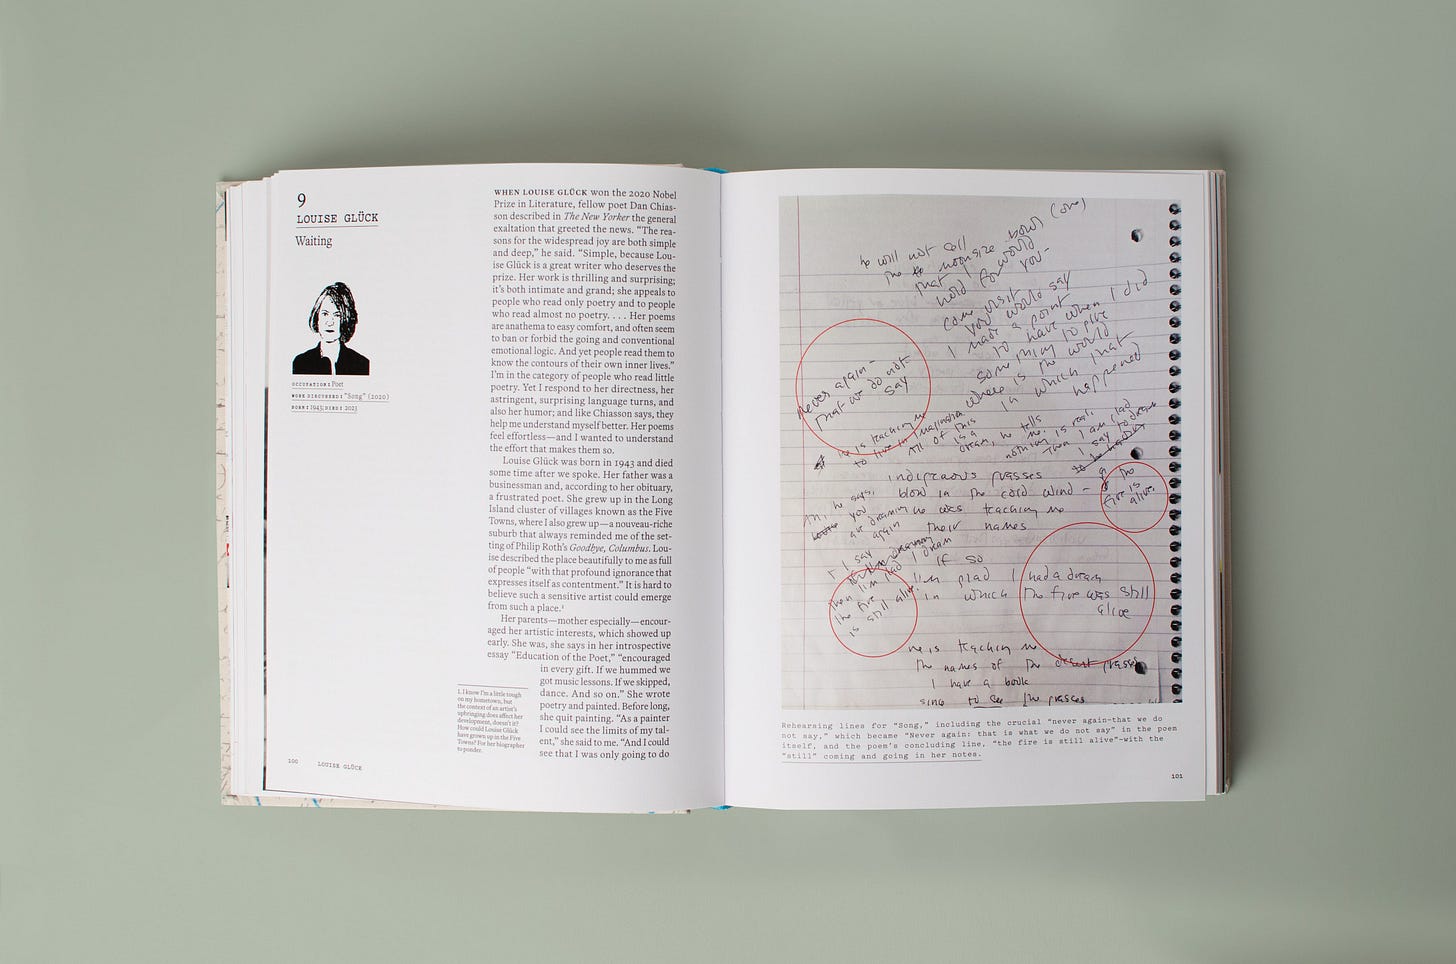 9
LOUISE GLÜCK
Waiting
OCCUPATION: Poet
WORK DISCUSSED: "Song" (2020)
BORN: 1943; DIED: 2023
WHEN LOUISE GLÜCK won the 2020 Nobel
Prize in Literature, fellow poet Dan Chias-
son described in The New Yorker the general
exaltation that greeted the news. “The rea-
sons for the widespread joy are both simple
and deep,” he said. “Simple, because Lou-
ise Glück is a great writer who deserves the
prize. Her work is thrilling and surprising;
it’s both intimate and grand; she appeals to
people who read only poetry and to people
who read almost no poetry. . . . Her poems
are anathema to easy comfort, and often seem
to ban or forbid the going and conventional
emotional logic. And yet people read them to
know the contours of their own inner lives.”
I’m in the category of people who read little
poetry. Yet I respond to her directness, her
astringent, surprising language turns, and
also her humor; and like Chiasson says, they
help me understand myself better. Her poems
feel effortless—and I wanted to understand
the effort that makes them so.
Louise Glück was born in 1943 and died
some time after we spoke. Her father was a
businessman and, according to her obituary,
a frustrated poet. She grew up in the Long
Island cluster of villages known as the Five
Towns, where I also grew up—a nouveau-riche
suburb that always reminded me of the set-
ting of Philip Roth’s Goodbye, Columbus. Lou-
ise described the place beautifully to me as full
of people “with that profound ignorance that
expresses itself as contentment.” It is hard to
believe such a sensitive artist could emerge
from such a place.¹
Her parents—mother especially—encour-
aged her artistic interests, which showed up
early. She was, she says in her introspective
essay “Education of the Poet,” “encouraged
in every gift. If we hummed we
got music lessons. If we skipped,
dance. And so on.” She wrote
poetry and painted. Before long,
she quit painting. “As a painter
I could see the limits of my tal-
ent,” she said to me. “And I could
see that I was only going to do
1. I know I’m a little tough
on my hometown, but
the context of an artist’s
upbringing does affect her
development, doesn’t it?
How could Louise Glück
have grown up in the Five
Towns? For her biographer
to ponder.
100 LOUISE GLÜCK
he will not call
the moonsize bowl (one)
that I would
hold for you-
come visit
you would say
I made a point
to have when I did
something to give
where is the world
in which that
happened
never again-
that we do not
say
he is teaching me
to live in imagination
All of this
is a
dream, he tells
me.
nothing is real.
Then I am glad
I say to dream
indigenous grasses
blow in the cold wind -
the
fire is
alive.
Ah, he says,
you
are dreaming
again
he was teaching me
their names
I say
then I'm glad I dream
the fire
is still alive.
if so
I'm glad I had a dream
in which the fire was still
alive
he is teaching me
the names of the desert grasses
I have a book
since to see the grasses
Rehearsing lines for "Song," including the crucial "never again—that we do
not say," which became "Never again: that is what we do not say" in the poem
itself, and the poem's concluding line, "the fire is still alive"—with the
"still" coming and going in her notes.
101